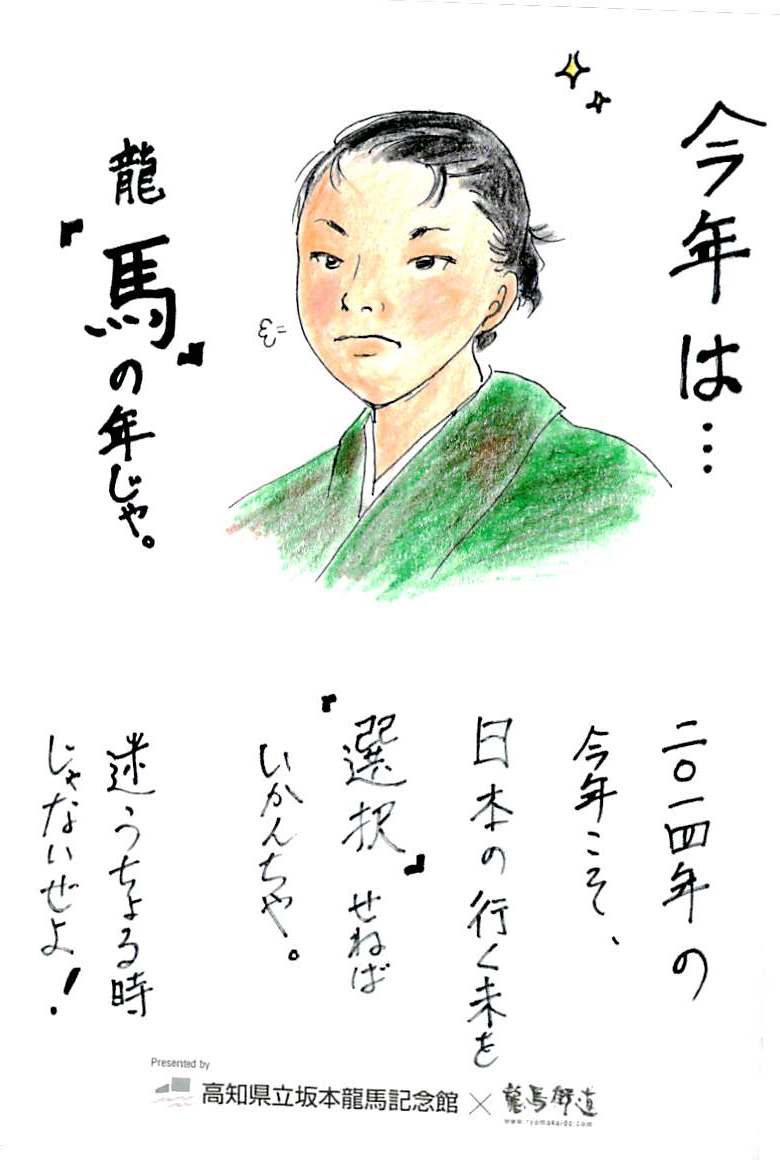 今年は…
龍
『馬』の年じゃ。
二〇一四年の
今年こそ、
日本の行く末を
『選択』せねば
いかんちや。
迷うちょる時
じゃないぜよ！
Presented by
高知県立坂本龍馬記念館×龍馬街道
www.ryomakaido.com